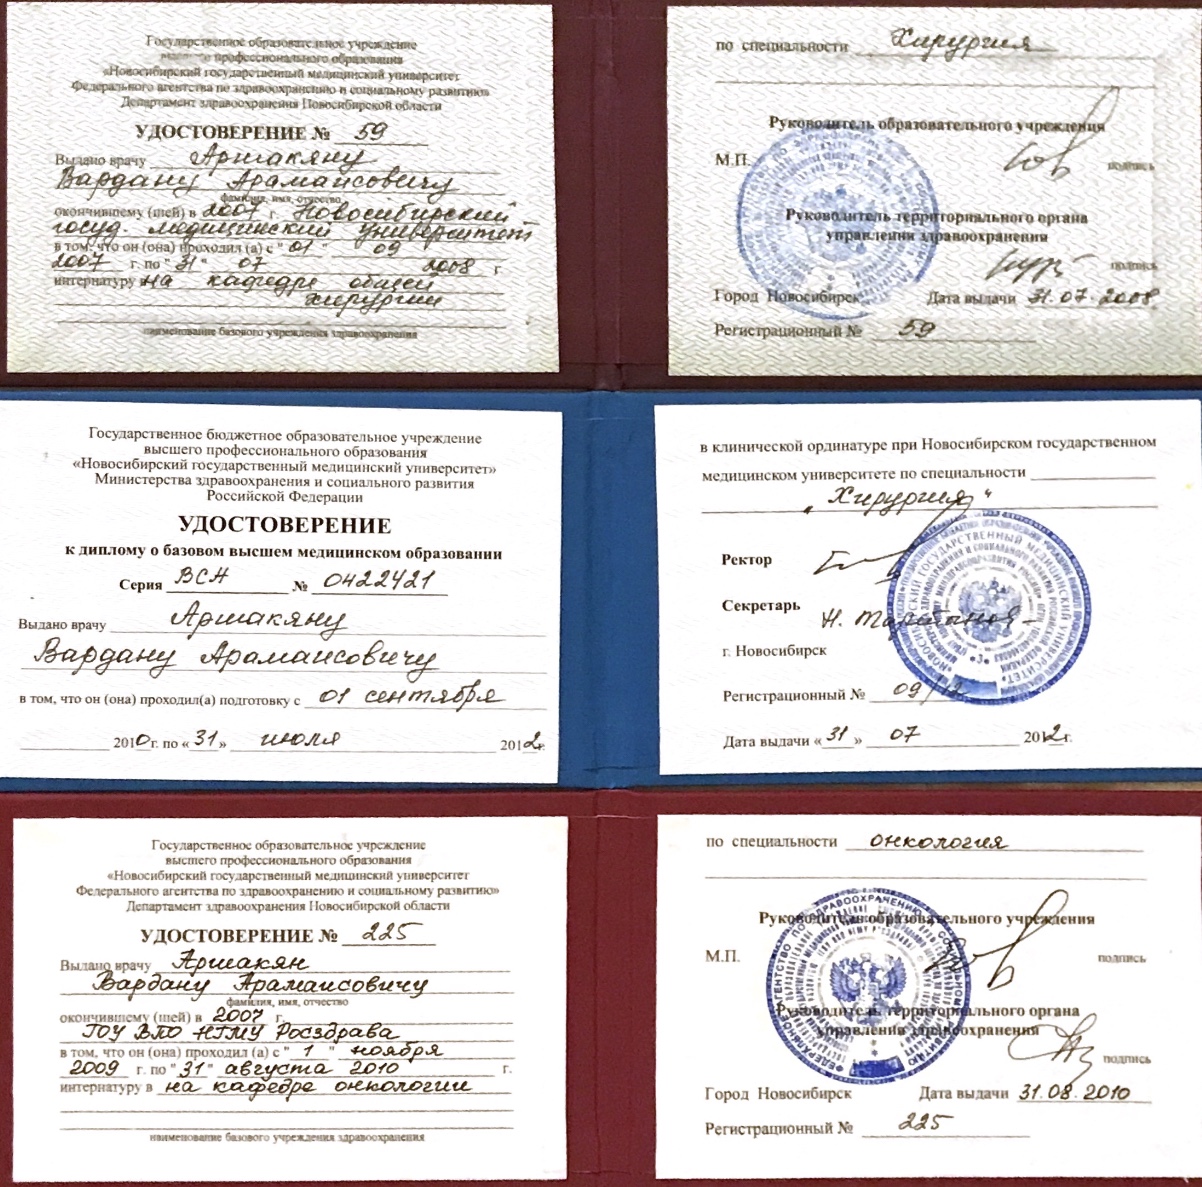 Государственное образовательное учреждение
высшего профессионального образования
«Новосибирский государственный медицинский университет
Федерального агентства по здравоохранению и социальному развитию»
Департамент здравоохранения Новосибирской области
УДОСТОВЕРЕНИЕ № 59
Выдано врачу Аршакяну
Вардану Арамаисовичу
фамилия, имя, отчество
окончившему (шей) в 2007 г. Новосибирский
госуд. медицинский университет
в том, что он (она) проходил (а) с "01" 09
2007 г. по "31" 07 2008 г.
интернатуру в на кафедре общей
хирургии
наименование базового учреждения здравоохранения
по специальности Хирургия
Руководитель образовательного учреждения
М.П. подпись
Руководитель территориального органа
управления здравоохранения
подпись
Город Новосибирск Дата выдачи 31.07.2008
Регистрационный № 59
Государственное бюджетное образовательное учреждение
высшего профессионального образования
«Новосибирский государственный медицинский университет»
Министерства здравоохранения и социального развития
Российской Федерации
УДОСТОВЕРЕНИЕ
к диплому о базовом высшем медицинском образовании
Серия ВСА № 0422421
Выдано врачу Аршакяну
Вардану Арамаисовичу
в том, что он (она) проходил(а) подготовку с 01 сентября
2010г. по «31» июля 2012г.
в клинической ординатуре при Новосибирском государственном
медицинском университете по специальности
„Хирургия“
Ректор
Секретарь
г. Новосибирск
Регистрационный № 09/12
Дата выдачи «31» 07 2012г.
Государственное образовательное учреждение
высшего профессионального образования
«Новосибирский государственный медицинский университет
Федерального агентства по здравоохранению и социальному развитию»
Департамент здравоохранения Новосибирской области
УДОСТОВЕРЕНИЕ № 225
Выдано врачу Аршакян
Вардану Арамаисовичу
фамилия, имя, отчество
окончившему (шей) в 2007 г.
ГОУ ВПО НГМУ Росздрава
в том, что он (она) проходил (а) с "1" ноября
2009 г. по "31" августа 2010 г.
интернатуру в на кафедре онкологии
наименование базового учреждения здравоохранения
по специальности онкология
Руководитель образовательного учреждения
М.П. подпись
Руководитель территориального органа
управления здравоохранения
подпись
Город Новосибирск Дата выдачи 31.08.2010
Регистрационный № 225